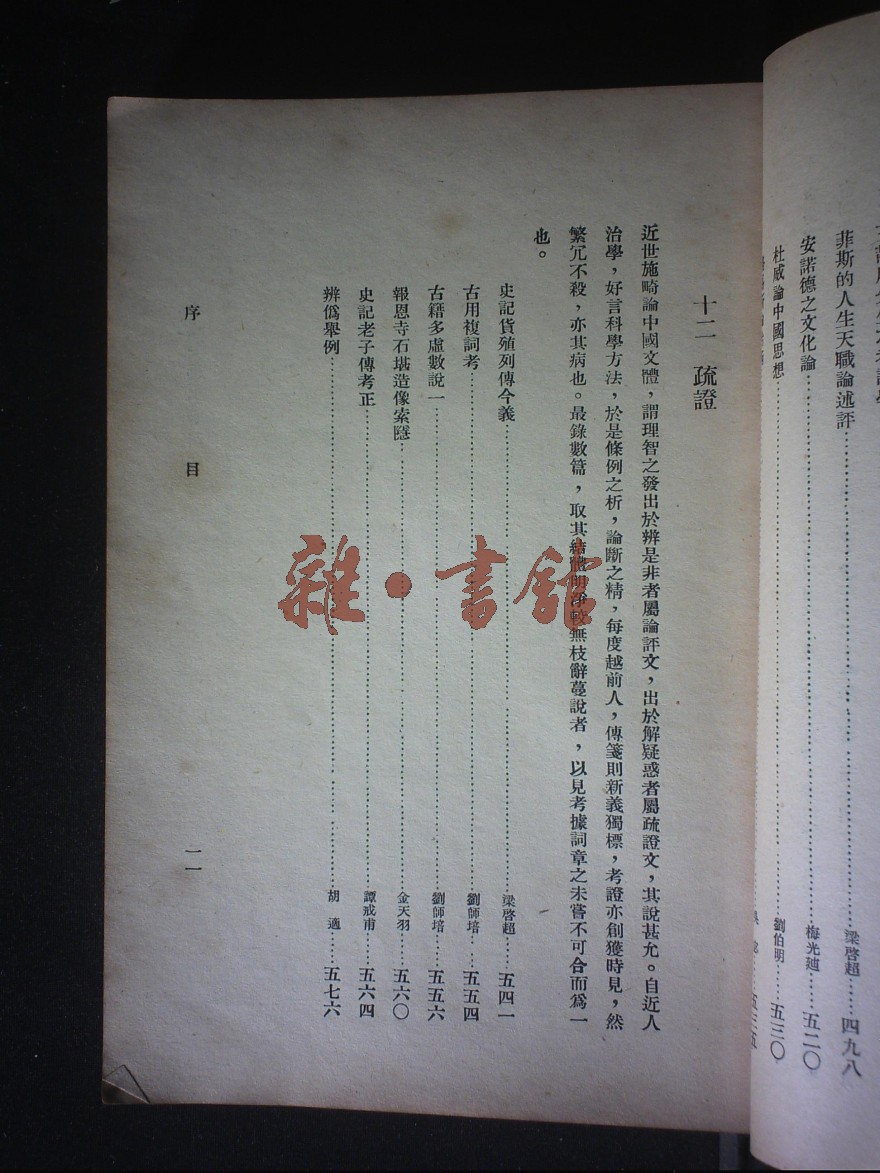 菲斯的人生天職論述評……梁啓超……四九八
安諾德之文化論……梅光廸……五二〇
杜威論中國思想……劉伯明……五三〇
十二 疏證
近世施畸論中國文體，謂理智之發出於辨是非者屬論評文，出於解疑惑者屬疏證文，其說甚允。自近人
治學，好言科學方法，於是條例之析，論斷之精，每度越前人，傳箋則新義獨標，考證亦創獲時見，然
繁冗不殺，亦其病也。最錄數篇，取其結體明淨較無枝辭蔓說者，以見考據詞章之未嘗不可合而爲一
也。
史記貨殖列傳今義……梁啓超……五四一
古用複詞考……劉師培……五五四
古籍多虛數說一……劉師培……五五六
報恩寺石堪造像索隱……金天羽……五六〇
史記老子傳考正……譚戒甫……五六四
辨僞舉例……胡適……五七六
序目 一一
雜·書館